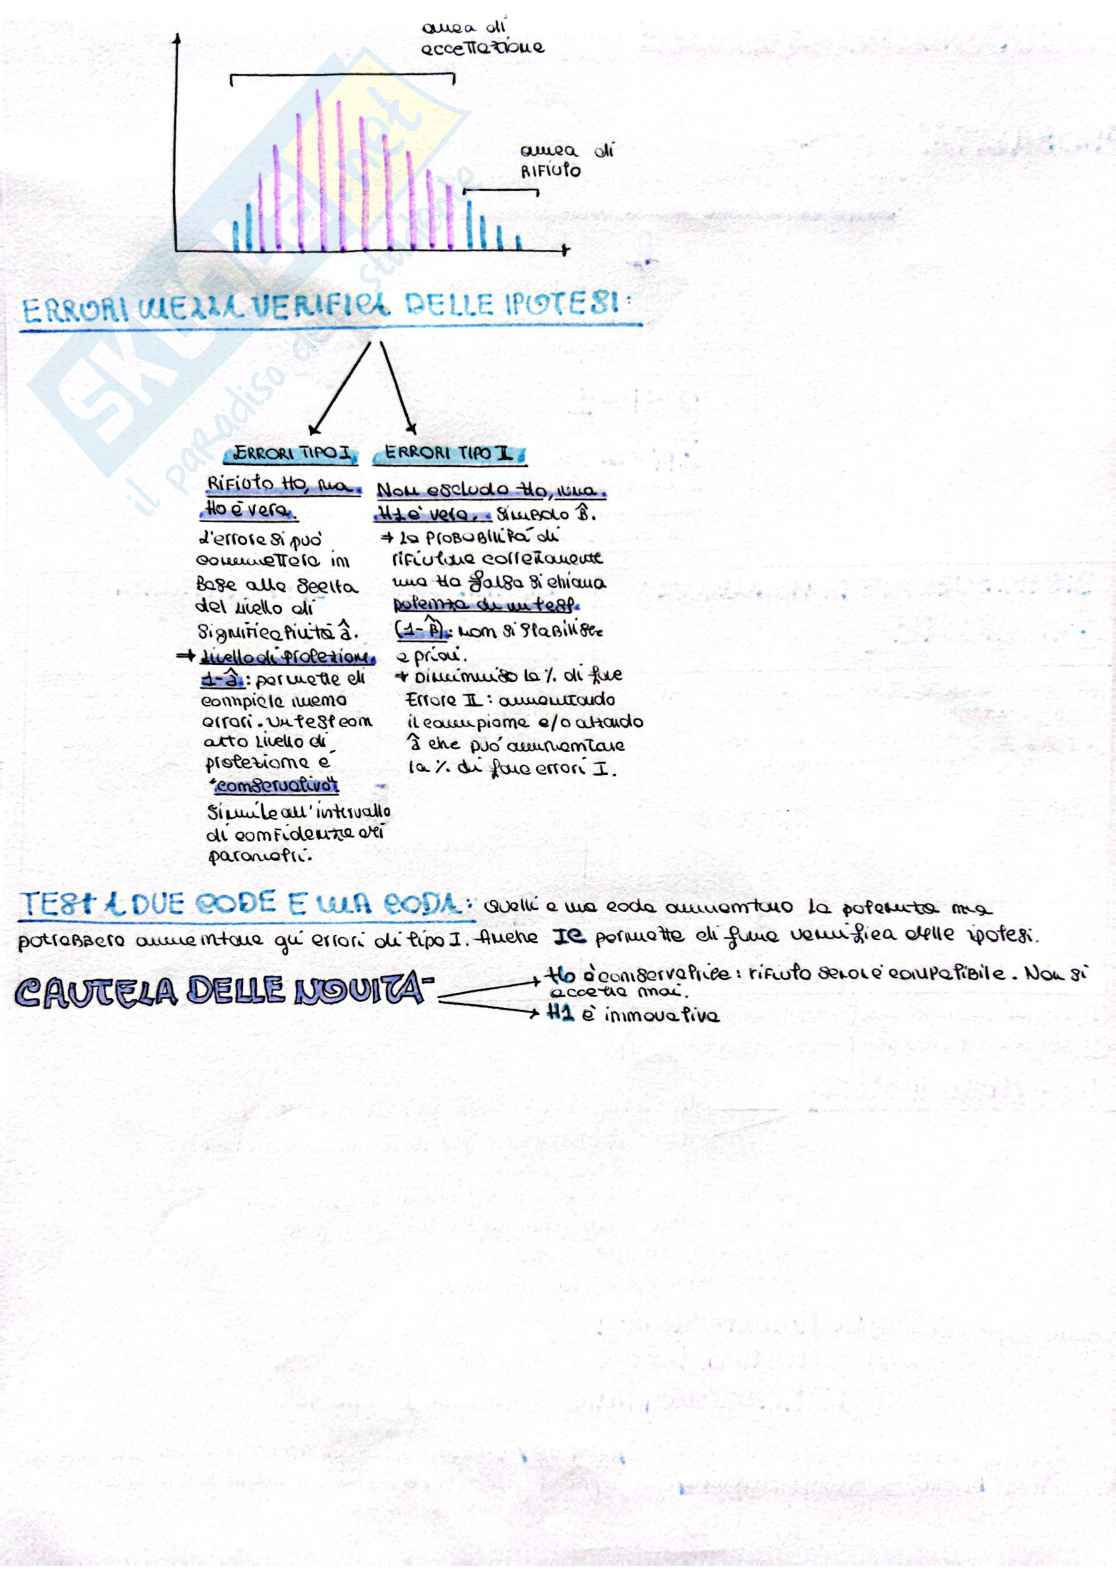 area di
accettazione
area di
RIFIUTO
SKUOLA.net
il paradiso dello studente
ERRORI NELLA VERIFICA DELLE IPOTESI:
ERRORI TIPO I
Rifiuto H0, ma
H0 è vera.
L'errore si può
commettere in
base alla scelta
del livello di
significatività â.
→ Livello di protezione
1-â: permette di
compiere meno
errori. Un test con
alto livello di
protezione è
"conservativo"
Simile all'intervallo
di confidenza dei
parametri.
ERRORI TIPO II
Non escludo H0, ma
H1 è vera. Simbolo B̂.
→ La PROBABILITÀ di
rifiutare correttamente
una H0 falsa si chiama
potenza di un test
(1-B̂): non si stabilisce
a priori.
→ Diminuisco la % di fare
Errore II: aumentando
il campione e/o alzando
â che può aumentare
la % di fare errori I.
TEST A DUE CODE E UNA CODA: Quelli a una coda aumentano la potenza ma
potrebbero aumentare gli errori di tipo I. Anche IC permette di fare verifica delle ipotesi.
CAUTELA DELLE NOVITÀ
H0 è conservatrice: rifiuto se non è compatibile. Non si
accetta mai.
H1 è innovativa